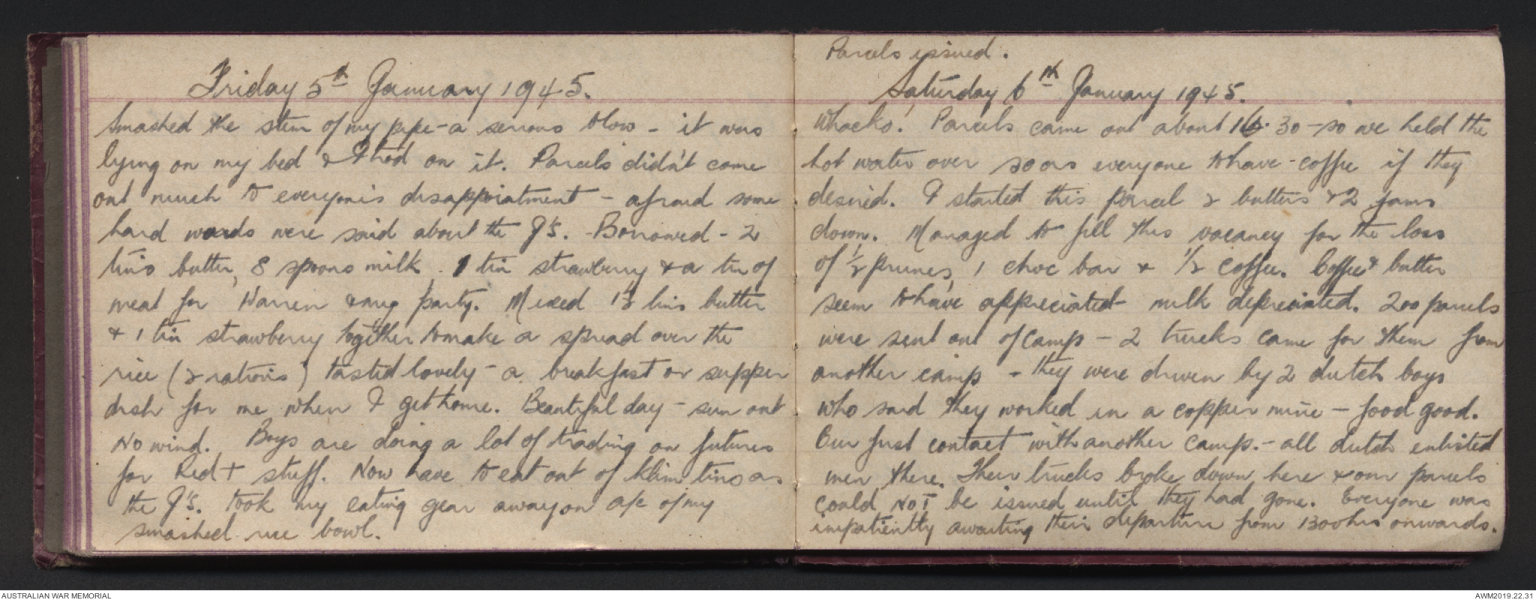 Friday 5th January 1945.
Smashed the stem of my pipe - a serious blow - it was
lying on my bed & I trod on it. Parcels didn't come
out much to everyone's disappointment - afraid some
hard words were said about the J's. Borrowed - 2
tins butter, 8 spoons milk. 1 tin strawberry & a tin of
meat for Warren & mug party. Mixed 1½ tins butter
& 1 tin strawberry together to make a spread over the
rice (2 rations) tasted lovely - a breakfast or supper
dish for me when I get home. Beautiful day - sun out
no wind. Boys are doing a lot of trading on futures
for Red + stuff. Now have to eat out of Klim tins as
the J's. took my eating gear away on a/c of my
smashed rice bowl.
Parcels issued.
Saturday 6th January 1945.
Whacko! Parcels came out about 16.30 - so we held the
hot water over so as everyone to have - coffee if they
desired. I started this parcel 2 butters & 2 jams
down. Managed to fill this vacancy for the loss
of ½ prunes, 1 choc bar & ½ coffee. Coffee & butter
seem to have appreciated milk depreciated. 200 parcels
were sent out of camp - 2 trucks came for them from
another camp - they were driven by 2 dutch boys
who said they worked in a copper mine - food good.
Our first contact with another camp. - all dutch enlisted
men there. Their trucks broke down here & our parcels
could NOT be issued until they had gone. Everyone was
impatiently awaiting their departure from 1300hrs onwards.
AUSTRALIAN WAR MEMORIAL
AWM2019.22.31